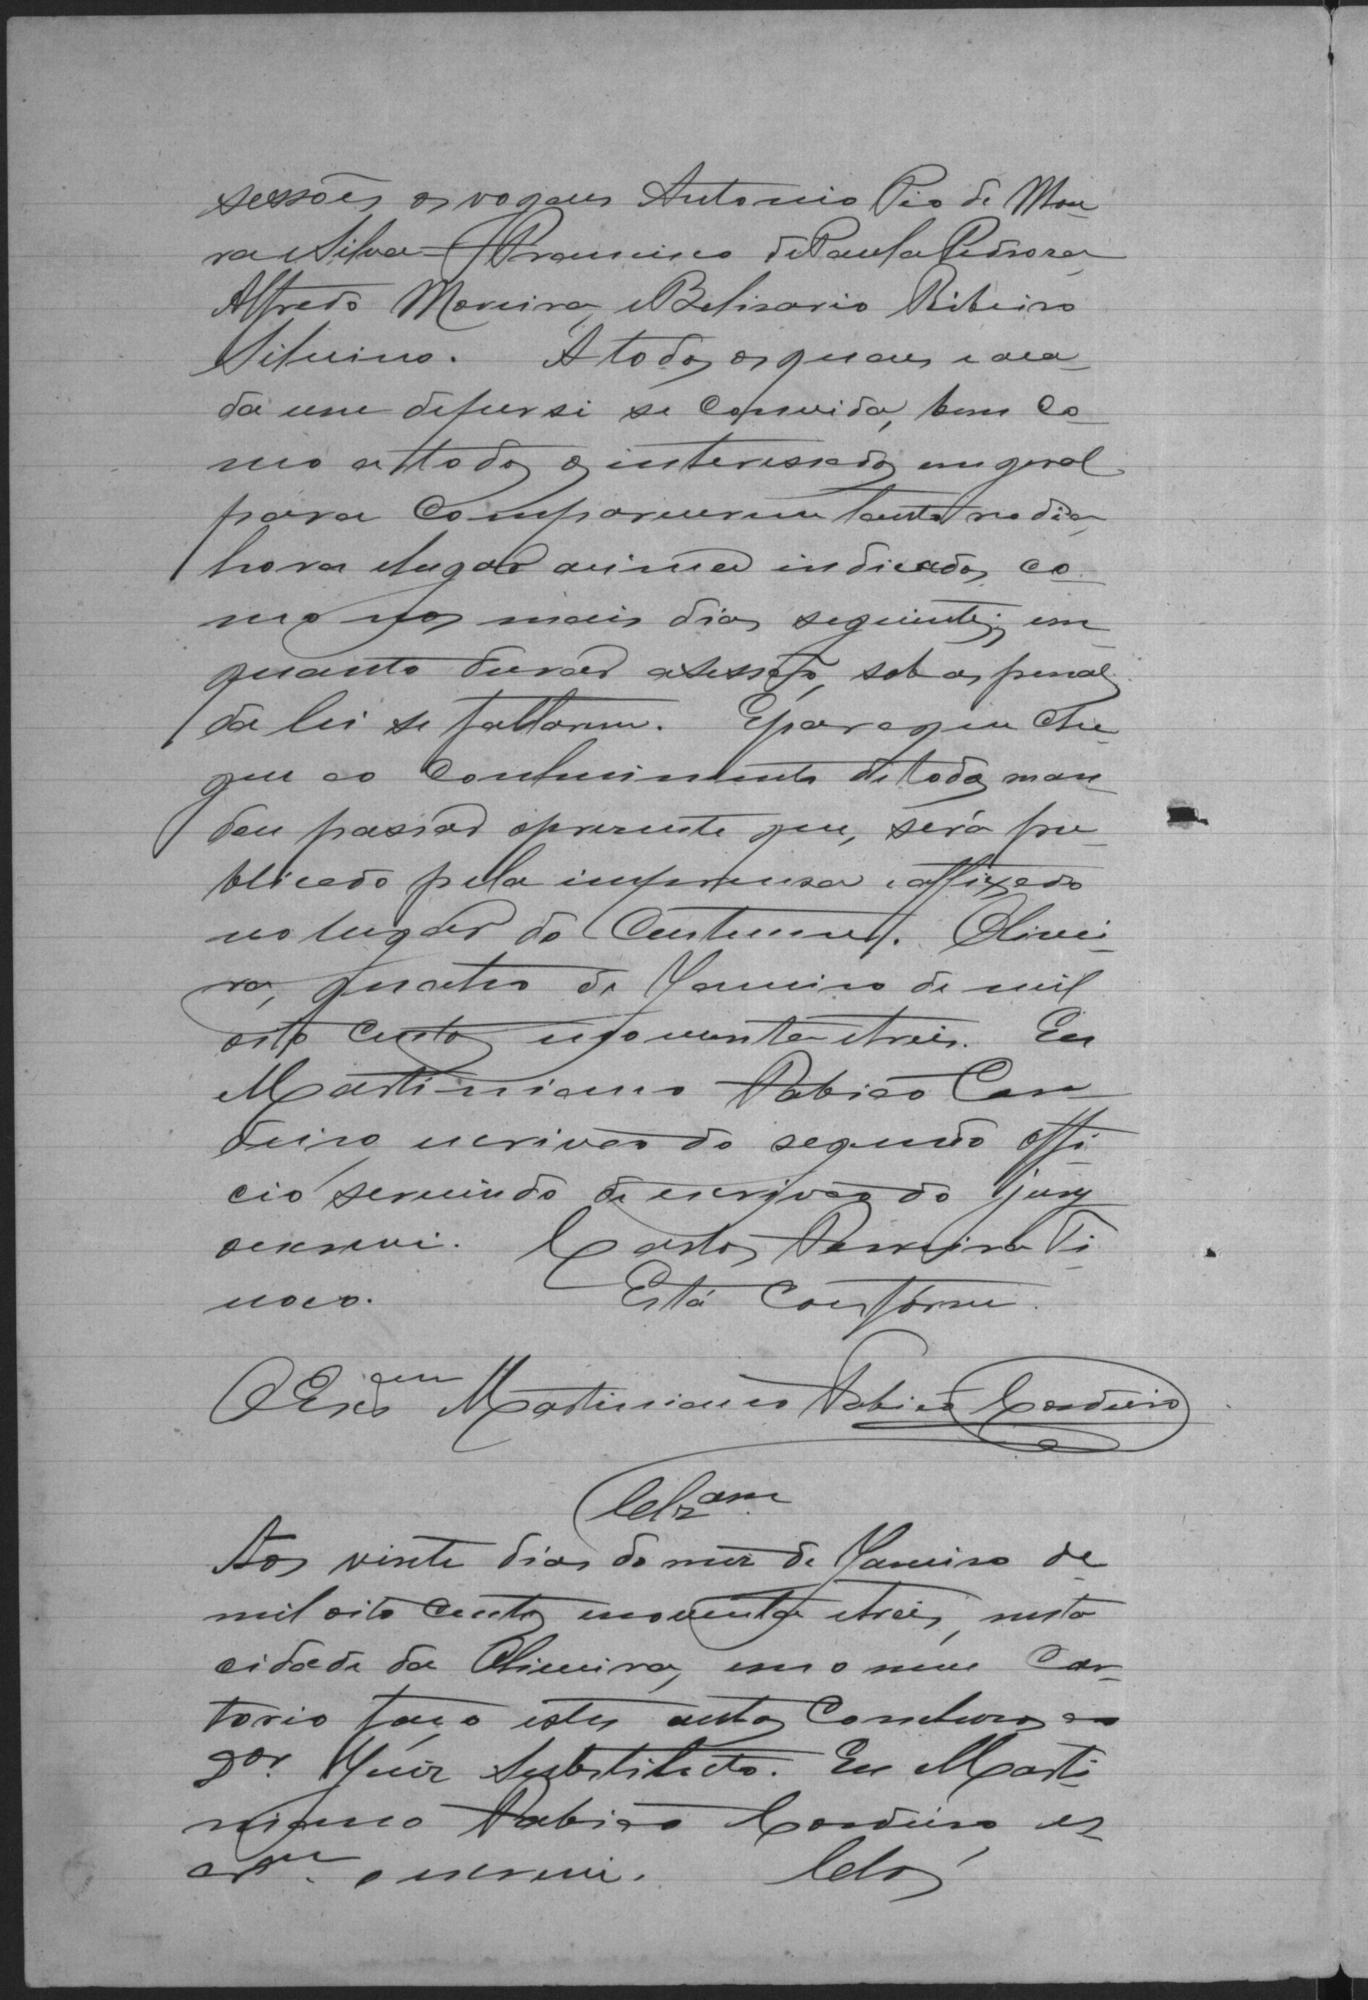 sessões os vogaes Antonio Pio de Mou-
ra e Silva = Francisco de Paula Pedrosa
Alfredo Moreira, e Belisario Ribeiro
Silvino. A todos os quaes e ca-
da um de per si se convida, bem co-
mo a todos os interessados em geral
para comparecerem tanto no dia,
hora e lugar acima indicados, co-
mo nos mais dias seguintes, em
quanto durar a sessão, sob as penas
da lei se faltarem. E para que che-
gue ao conhecimento de todos man-
dou passar o presente que, será pu-
blicado pela imprensa e affixado
no lugar do costume. Olivei-
ra, quatro de Janeiro de mil
oito centos e noventa e treis. Eu
Martiniano Fabião Cor-
deiro escrivão do segundo offi-
cio servindo de escrivão do jury
o escrevi. Carlos Ferreira Ti-
noco. Está conforme.
O Escr.am Martiniano Fabião Cordeiro
Clz.am
Aos vinte dias do mez de Janeiro de
mil oito centos e noventa e treis, nesta
cidade da Oliveira, em o meu car-
torio faço estes autos conclusos ao
Dor. Juiz Substituto. Eu Marti-
niano Fabião Cordeiro, es-
crm. o escrevi. Clos